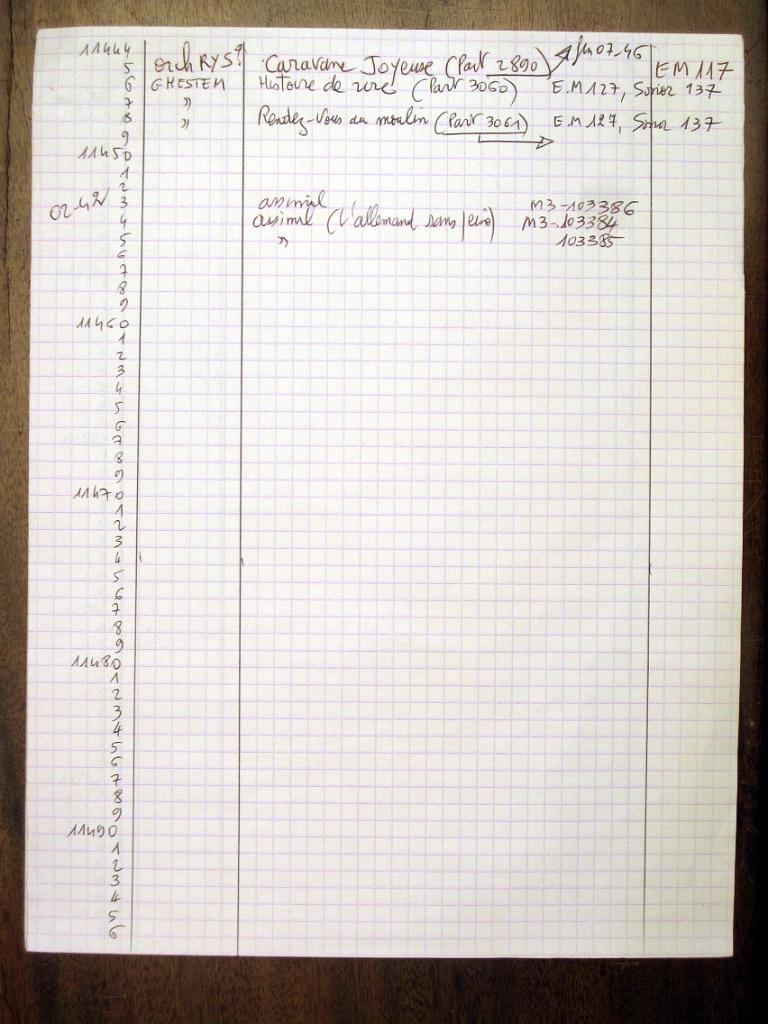 11444 fin 07-46
5 orch RYS? Caravane Joyeuse (Part 2890) EM 117
6 GHESTEM Histoire de rires (Part 3060) E.M 127, Sonor 137
7 "
8 " Rendez-Vous au moulin (Part 3061) E.M 127, Sonor 137
9
11450
1
2
02-42 3 assimil M3-103386
4 assimil (L'allemand sans peine) M3-103384
5 " 103385
6
7
8
9
11460
1
2
3
4
5
6
7
8
9
11470
1
2
3
4
5
6
7
8
9
11480
1
2
3
4
5
6
7
8
9
11490
1
2
3
4
5
6